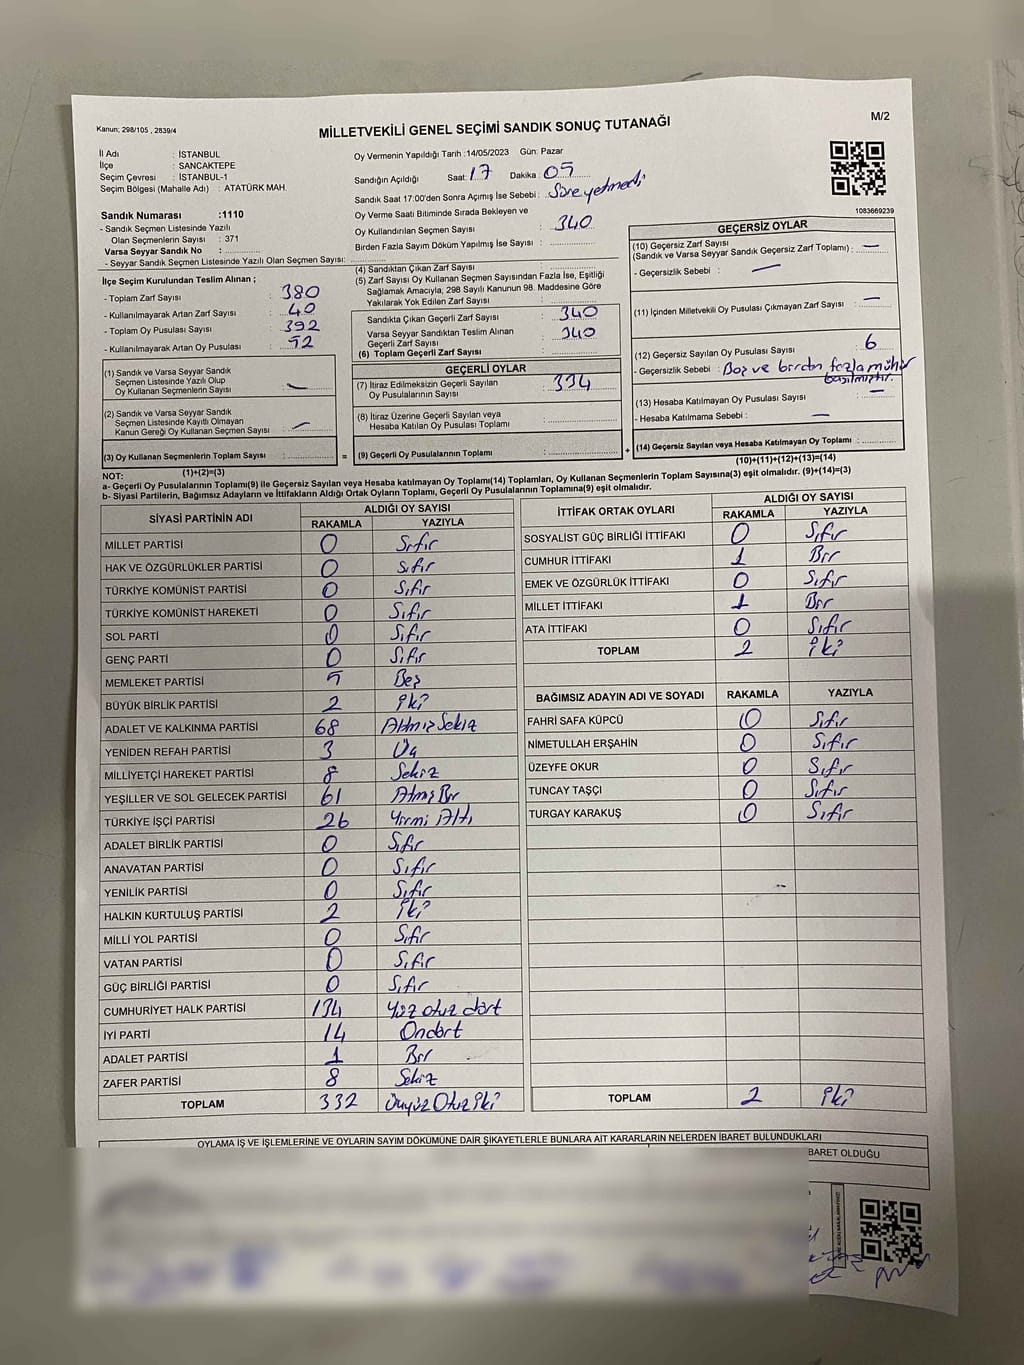 Kanun: 298/105 , 2839/4
MİLLETVEKİLİ GENEL SEÇİMİ SANDIK SONUÇ TUTANAĞI
M/2
İl Adı : İSTANBUL
İlçe : SANCAKTEPE
Seçim Çevresi : İSTANBUL-1
Seçim Bölgesi (Mahalle Adı) : ATATÜRK MAH.
Sandık Numarası :1110
- Sandık Seçmen Listesinde Yazılı
Olan Seçmenlerin Sayısı : 371
Varsa Seyyar Sandık No :
- Seyyar Sandık Seçmen Listesinde Yazılı Olan Seçmen Sayısı:
Oy Vermenin Yapıldığı Tarih :14/05/2023 Gün: Pazar
Sandığın Açıldığı Saat: 17 Dakika: 05
Sandık Saat 17:00'den Sonra Açımış İse Sebebi : Süre yetmedi
Oy Verme Saati Bitiminde Sırada Bekleyen ve
Oy Kullandırılan Seçmen Sayısı : 340
Birden Fazla Sayım Döküm Yapılmış İse Sayısı :
1083669239
İlçe Seçim Kurulundan Teslim Alınan ;
- Toplam Zarf Sayısı : 380
- Kullanılmayarak Artan Zarf Sayısı : 40
- Toplam Oy Pusulası Sayısı : 392
- Kullanılmayarak Artan Oy Pusulası : 52
(1) Sandık ve Varsa Seyyar Sandık
Seçmen Listesinde Yazılı Olup
Oy Kullanan Seçmenlerin Sayısı : —
(2) Sandık ve Varsa Seyyar Sandık
Seçmen Listesinde Kayıtlı Olmayan
Kanun Gereği Oy Kullanan Seçmen Sayısı : —
(3) Oy Kullanan Seçmenlerin Toplam Sayısı :
(4) Sandıktan Çıkan Zarf Sayısı :
(5) Zarf Sayısı Oy Kullanan Seçmen Sayısından Fazla İse, Eşitliği
Sağlamak Amacıyla, 298 Sayılı Kanunun 98. Maddesine Göre
Yakılarak Yok Edilen Zarf Sayısı :
Sandıkta Çıkan Geçerli Zarf Sayısı : 340
Varsa Seyyar Sandıktan Teslim Alınan
Geçerli Zarf Sayısı : 340
(6) Toplam Geçerli Zarf Sayısı
GEÇERLİ OYLAR
(7) İtiraz Edilmeksizin Geçerli Sayılan
Oy Pusulalarının Sayısı : 334
(8) İtiraz Üzerine Geçerli Sayılan veya
Hesaba Katılan Oy Pusulası Toplamı :
= (9) Geçerli Oy Pusulalarının Toplamı :
GEÇERSİZ OYLAR
(10) Geçersiz Zarf Sayısı
(Sandık ve Varsa Seyyar Sandık Geçersiz Zarf Toplamı) : —
- Geçersizlik Sebebi : —
(11) İçinden Milletvekili Oy Pusulası Çıkmayan Zarf Sayısı : —
(12) Geçersiz Sayılan Oy Pusulası Sayısı : 6
- Geçersizlik Sebebi : Boş ve birden fazla mühür
basılmıştır.
(13) Hesaba Katılmayan Oy Pusulası Sayısı : —
- Hesaba Katılmama Sebebi : —
+ (14) Geçersiz Sayılan veya Hesaba Katılmayan Oy Toplamı :
(10)+(11)+(12)+(13)=(14)
NOT: (1)+(2)=(3)
a- Geçerli Oy Pusulalarının Toplamı(9) ile Geçersiz Sayılan veya Hesaba katılmayan Oy Toplamı(14) Toplamları, Oy Kullanan Seçmenlerin Toplam Sayısına(3) eşit olmalıdır. (9)+(14)=(3)
b- Siyasi Partilerin, Bağımsız Adayların ve İttifakların Aldığı Ortak Oyların Toplamı, Geçerli Oy Pusulalarının Toplamına(9) eşit olmalıdır.
SİYASİ PARTİNİN ADI ALDIĞI OY SAYISI
RAKAMLA YAZIYLA
MİLLET PARTİSİ 0 Sıfır
HAK VE ÖZGÜRLÜKLER PARTİSİ 0 Sıfır
TÜRKİYE KOMÜNİST PARTİSİ 0 Sıfır
TÜRKİYE KOMÜNİST HAREKETİ 0 Sıfır
SOL PARTİ 0 Sıfır
GENÇ PARTİ 0 Sıfır
MEMLEKET PARTİSİ 5 Beş
BÜYÜK BİRLİK PARTİSİ 2 İki
ADALET VE KALKINMA PARTİSİ 68 Atmış Sekiz
YENİDEN REFAH PARTİSİ 3 Üç
MİLLİYETÇİ HAREKET PARTİSİ 8 Sekiz
YEŞİLLER VE SOL GELECEK PARTİSİ 61 Atmış Bir
TÜRKİYE İŞÇİ PARTİSİ 26 Yirmi Altı
ADALET BİRLİK PARTİSİ 0 Sıfır
ANAVATAN PARTİSİ 0 Sıfır
YENİLİK PARTİSİ 0 Sıfır
HALKIN KURTULUŞ PARTİSİ 2 İki
MİLLİ YOL PARTİSİ 0 Sıfır
VATAN PARTİSİ 0 Sıfır
GÜÇ BİRLİĞİ PARTİSİ 0 Sıfır
CUMHURİYET HALK PARTİSİ 134 Yüz otuz dört
İYİ PARTİ 14 Ondört
ADALET PARTİSİ 1 Bir
ZAFER PARTİSİ 8 Sekiz
TOPLAM 332 Üçyüz Otuz İki
İTTİFAK ORTAK OYLARI ALDIĞI OY SAYISI
RAKAMLA YAZIYLA
SOSYALİST GÜÇ BİRLİĞİ İTTİFAKI 0 Sıfır
CUMHUR İTTİFAKI 1 Bir
EMEK VE ÖZGÜRLÜK İTTİFAKI 0 Sıfır
MİLLET İTTİFAKI 1 Bir
ATA İTTİFAKI 0 Sıfır
TOPLAM 2 İki
BAĞIMSIZ ADAYIN ADI VE SOYADI RAKAMLA YAZIYLA
FAHRİ SAFA KÜPCÜ 0 Sıfır
NİMETULLAH ERŞAHİN 0 Sıfır
ÜZEYFE OKUR 0 Sıfır
TUNCAY TAŞÇI 0 Sıfır
TURGAY KARAKUŞ 0 Sıfır
TOPLAM 2 İki
OYLAMA İŞ VE İŞLEMLERİNE VE OYLARIN SAYIM DÖKÜMÜNE DAİR ŞİKAYETLERLE BUNLARA AİT KARARLARIN NELERDEN İBARET BULUNDUKLARI
BARET OLDUĞU